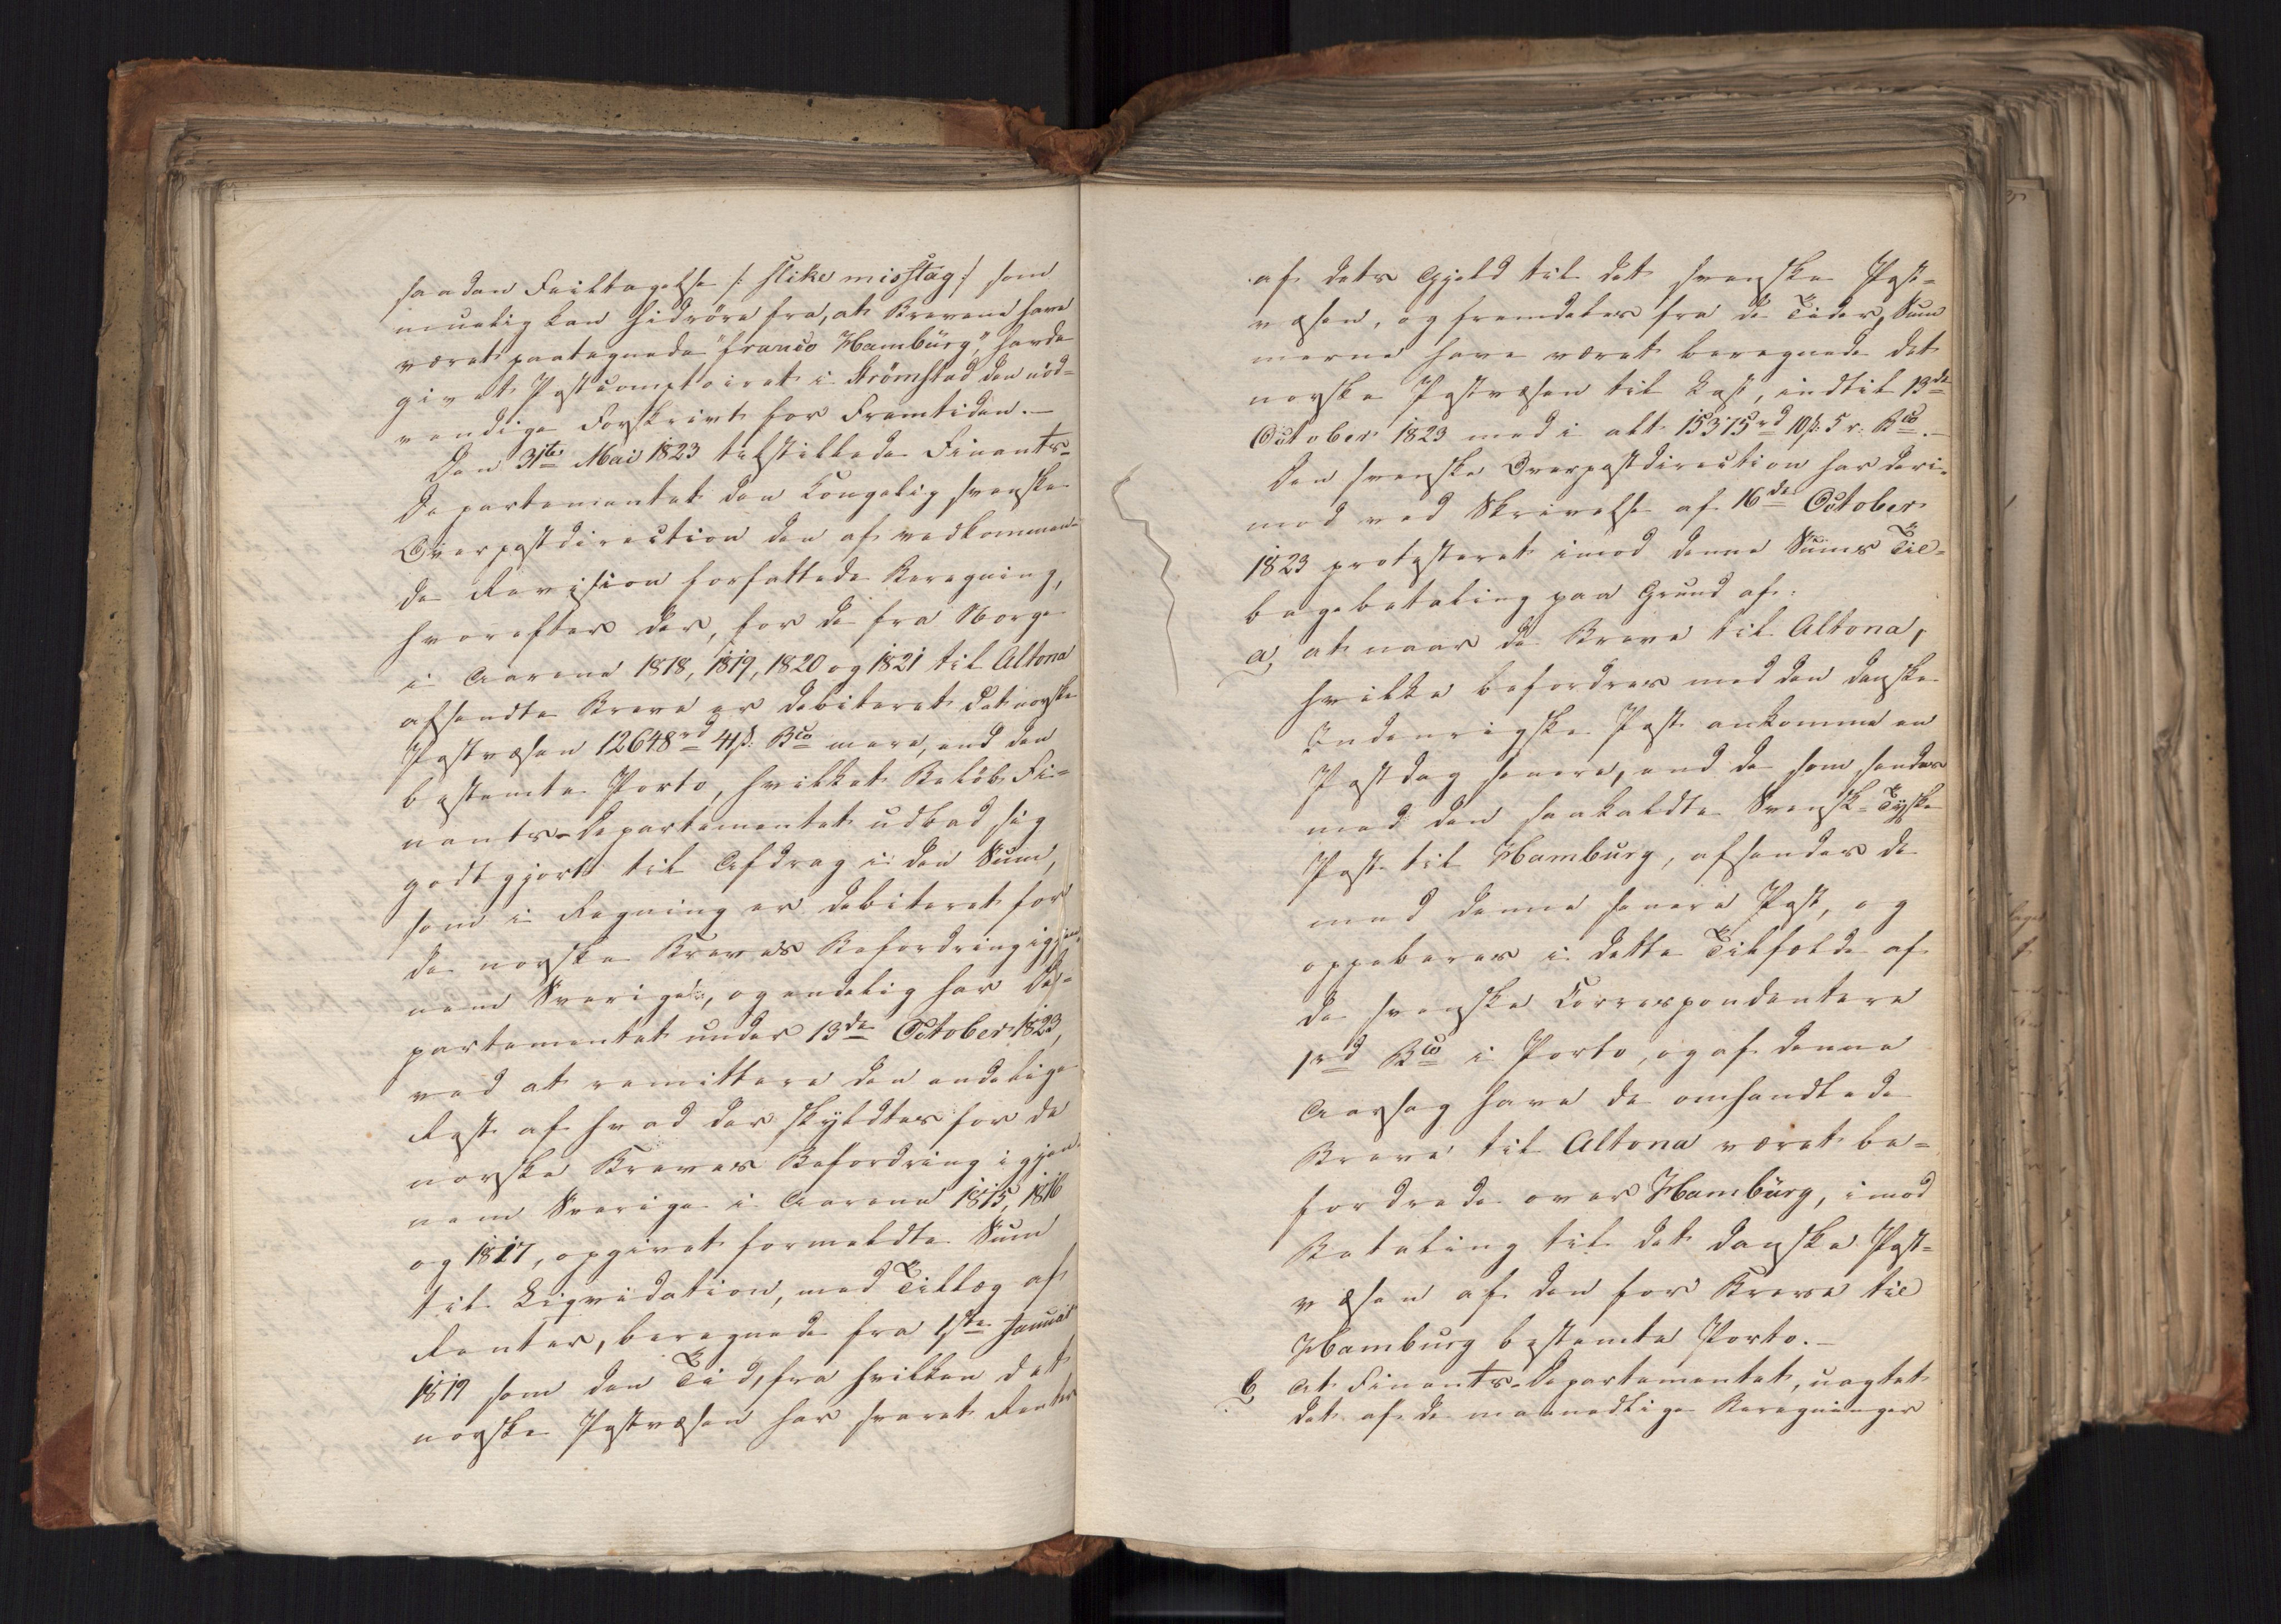 saadan Feiltagelse /: slike misstag :/ som
muelig kan hidröre fra, at Brevene have
været paategnede "franco Hambürg", havde
givet Postcomptoiret i Strömstad den nöd-
vendige Forskrivt for Fremtiden.—
Den 31te Mai 1823 tilstillede Finants-
Departementet den Kongelig svenske
Overpostdirection den af vedkommen-
de Revision forfattede Beregning,
hvorefter der, for de fra Norge
i Aarene 1818, 1819, 1820 og 1821 til Altona
afsendte Breve er debiteret det norske
Postvæsen 12648rd 41ß: Bco mere, end den
bestemte Porto, hvilket Belöb Fi-
nants-Departementet udbad sig
godtgjort til Afdrag i den Sum,
som i Regning er debiteret for
de norske Breves Befordring igjen-
nem Sverige, og endelig har De-
partementet under 13de October 1823,
ved at remittere den endelige
Rest af hvad der skyldtes for de
norske Breves Befordring igjen-
nem Sverige i Aarene 1815, 1816
og 1817, opgivet formeldte Sum
til Liqvidation, med Tillæg af
Renter, beregnede fra 1ste Januar
1819 som den Tid, fra hvilken det
norske Postvæsen har svaret Renter
af dets Gjeld til det svenske Post-
væsen, og fremdeles fra de Tider, Sum
merne have været beregnede det
norske Postvæsen til Last, indtil 13de
October 1823 med i alt 15375rd 10ß: 5 r: Bco.—
Den svenske Overpostdirection har deri-
mod ved Skrivelse af 16de October
1823 protesteret imod denne Sums Til-
bagebetaling paa Grund af:
a, at naar de Breve til Altona,
hvilke befordres med den danske
Indenrigske Post ankomme en
Postdag senere, end de som sendes
med den saakaldte Svensk-Tyske
Post til Hamburg, afsendes de
med denne senere Post, og
oppebæres i dette Tilfælde af
de svenske Correspondentere
1rd Bco i Porto, og af denne
Aarsag have de omhandlede
Breve til Altona været be-
fordrede over Hambürg, imod
Betaling til det danske Post-
væsen af den for Breve til
Hamburg bestemte Porto.—
b, At Finants-Departementet, uagtet
det af de maanedlige Beregninger